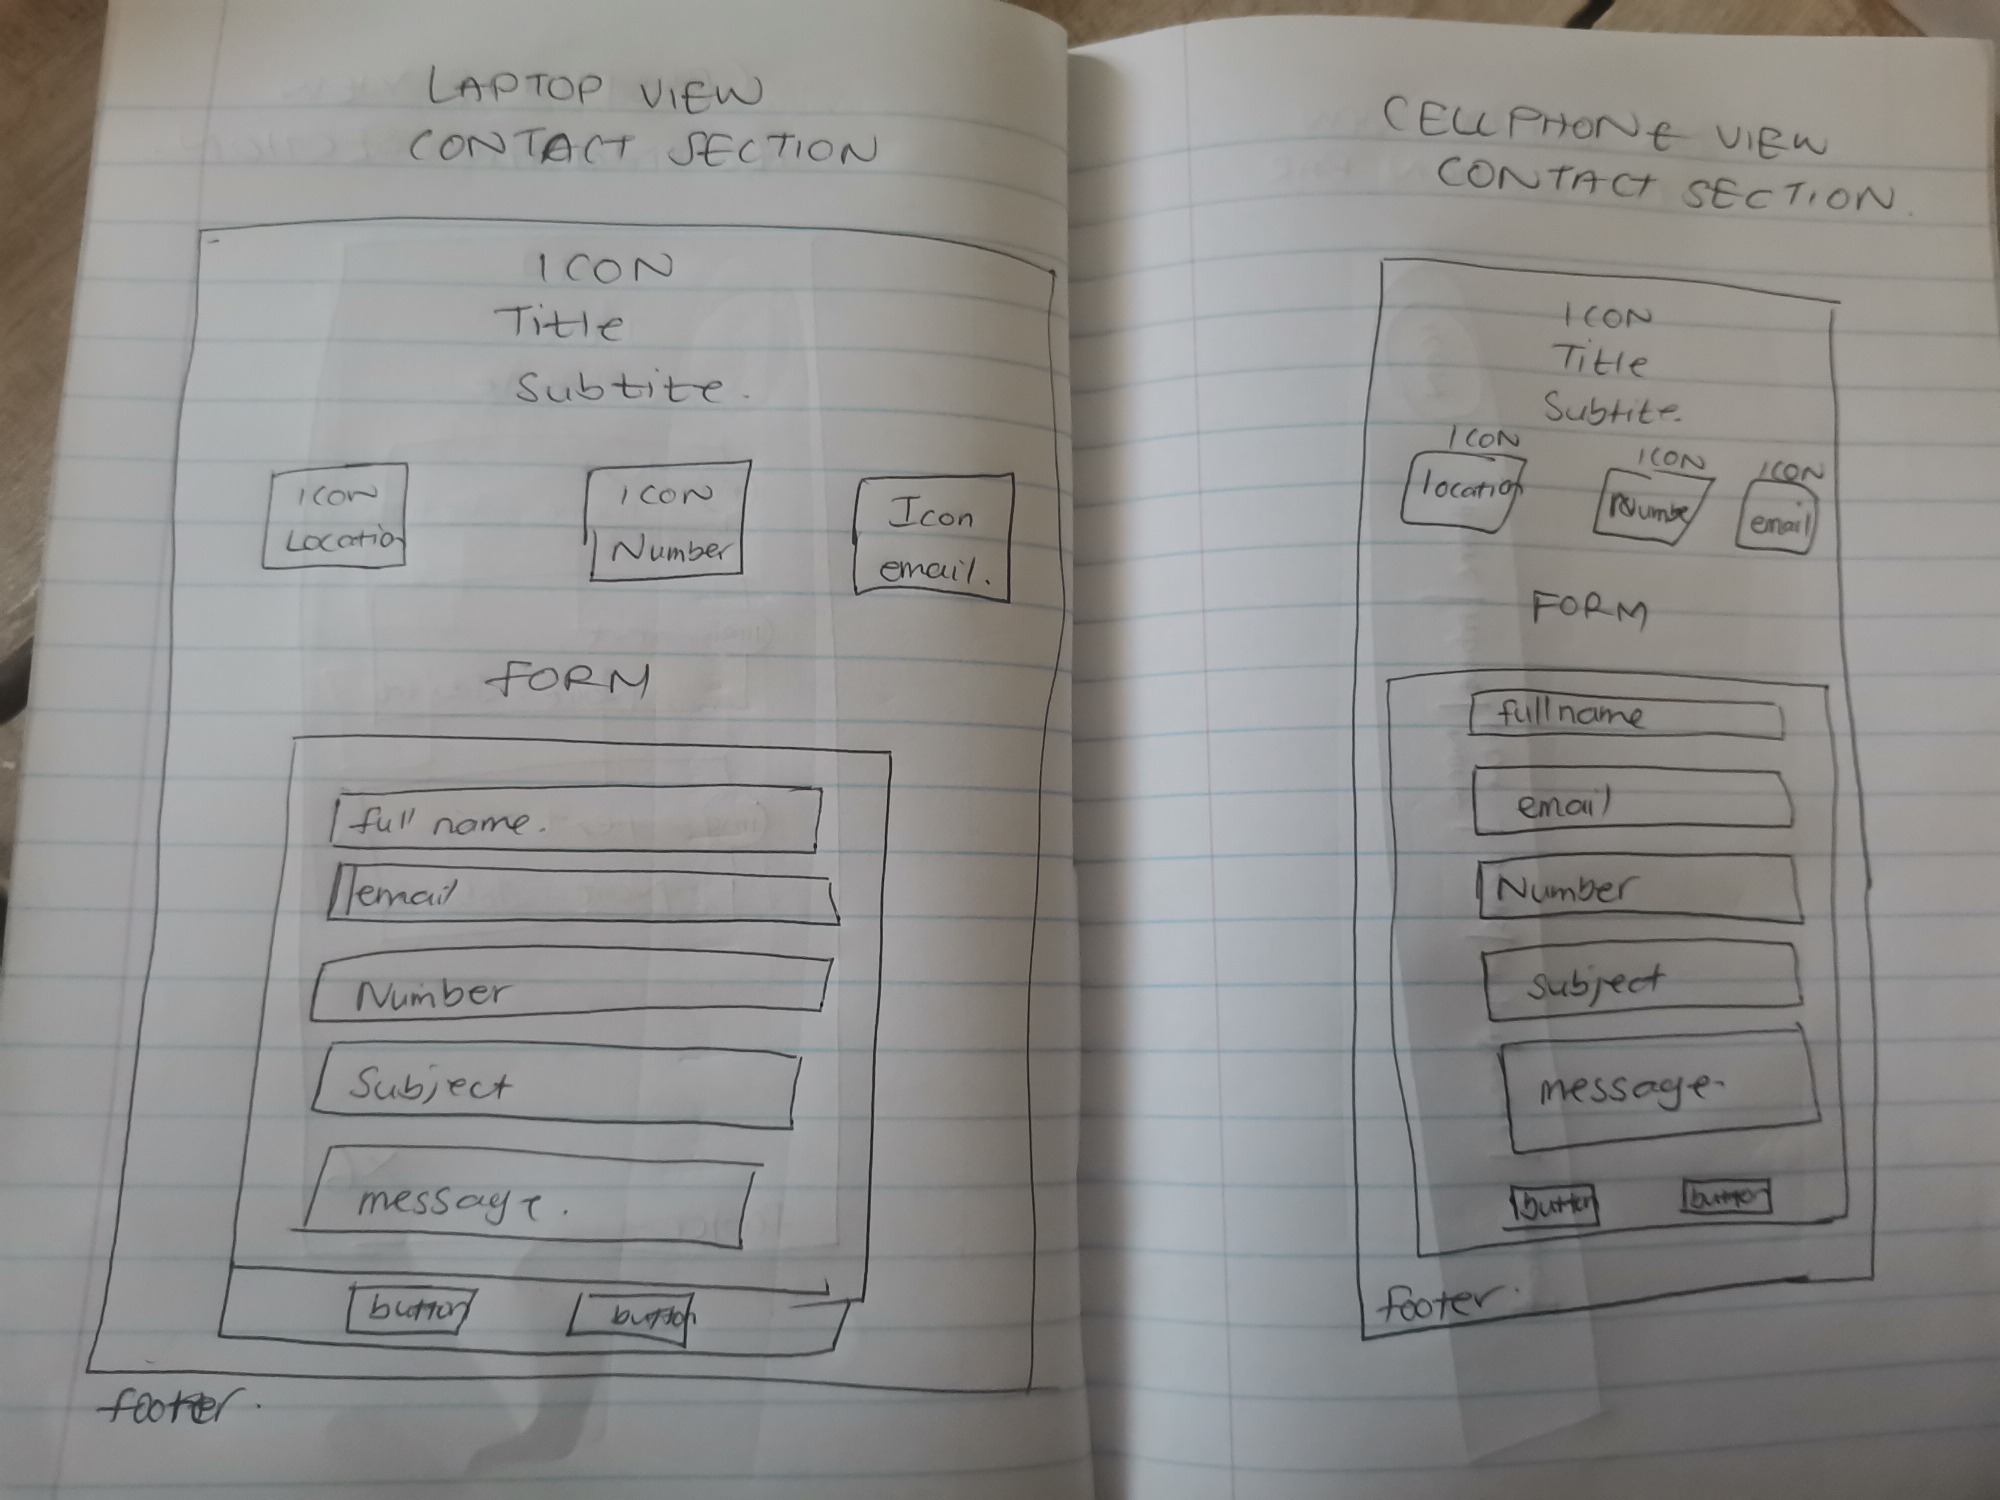 LAPTOP VIEW
CONTACT SECTION
ICON
Title
Subtite.
ICON
Location
ICON
Number
Icon
email.
FORM
full name.
email
Number
Subject
message.
button
button
footer.
CELLPHONE VIEW
CONTACT SECTION.
ICON
Title
Subtite.
ICON
location
ICON
Number
ICON
email
FORM
full name
email
Number
Subject
message.
button
button
footer.